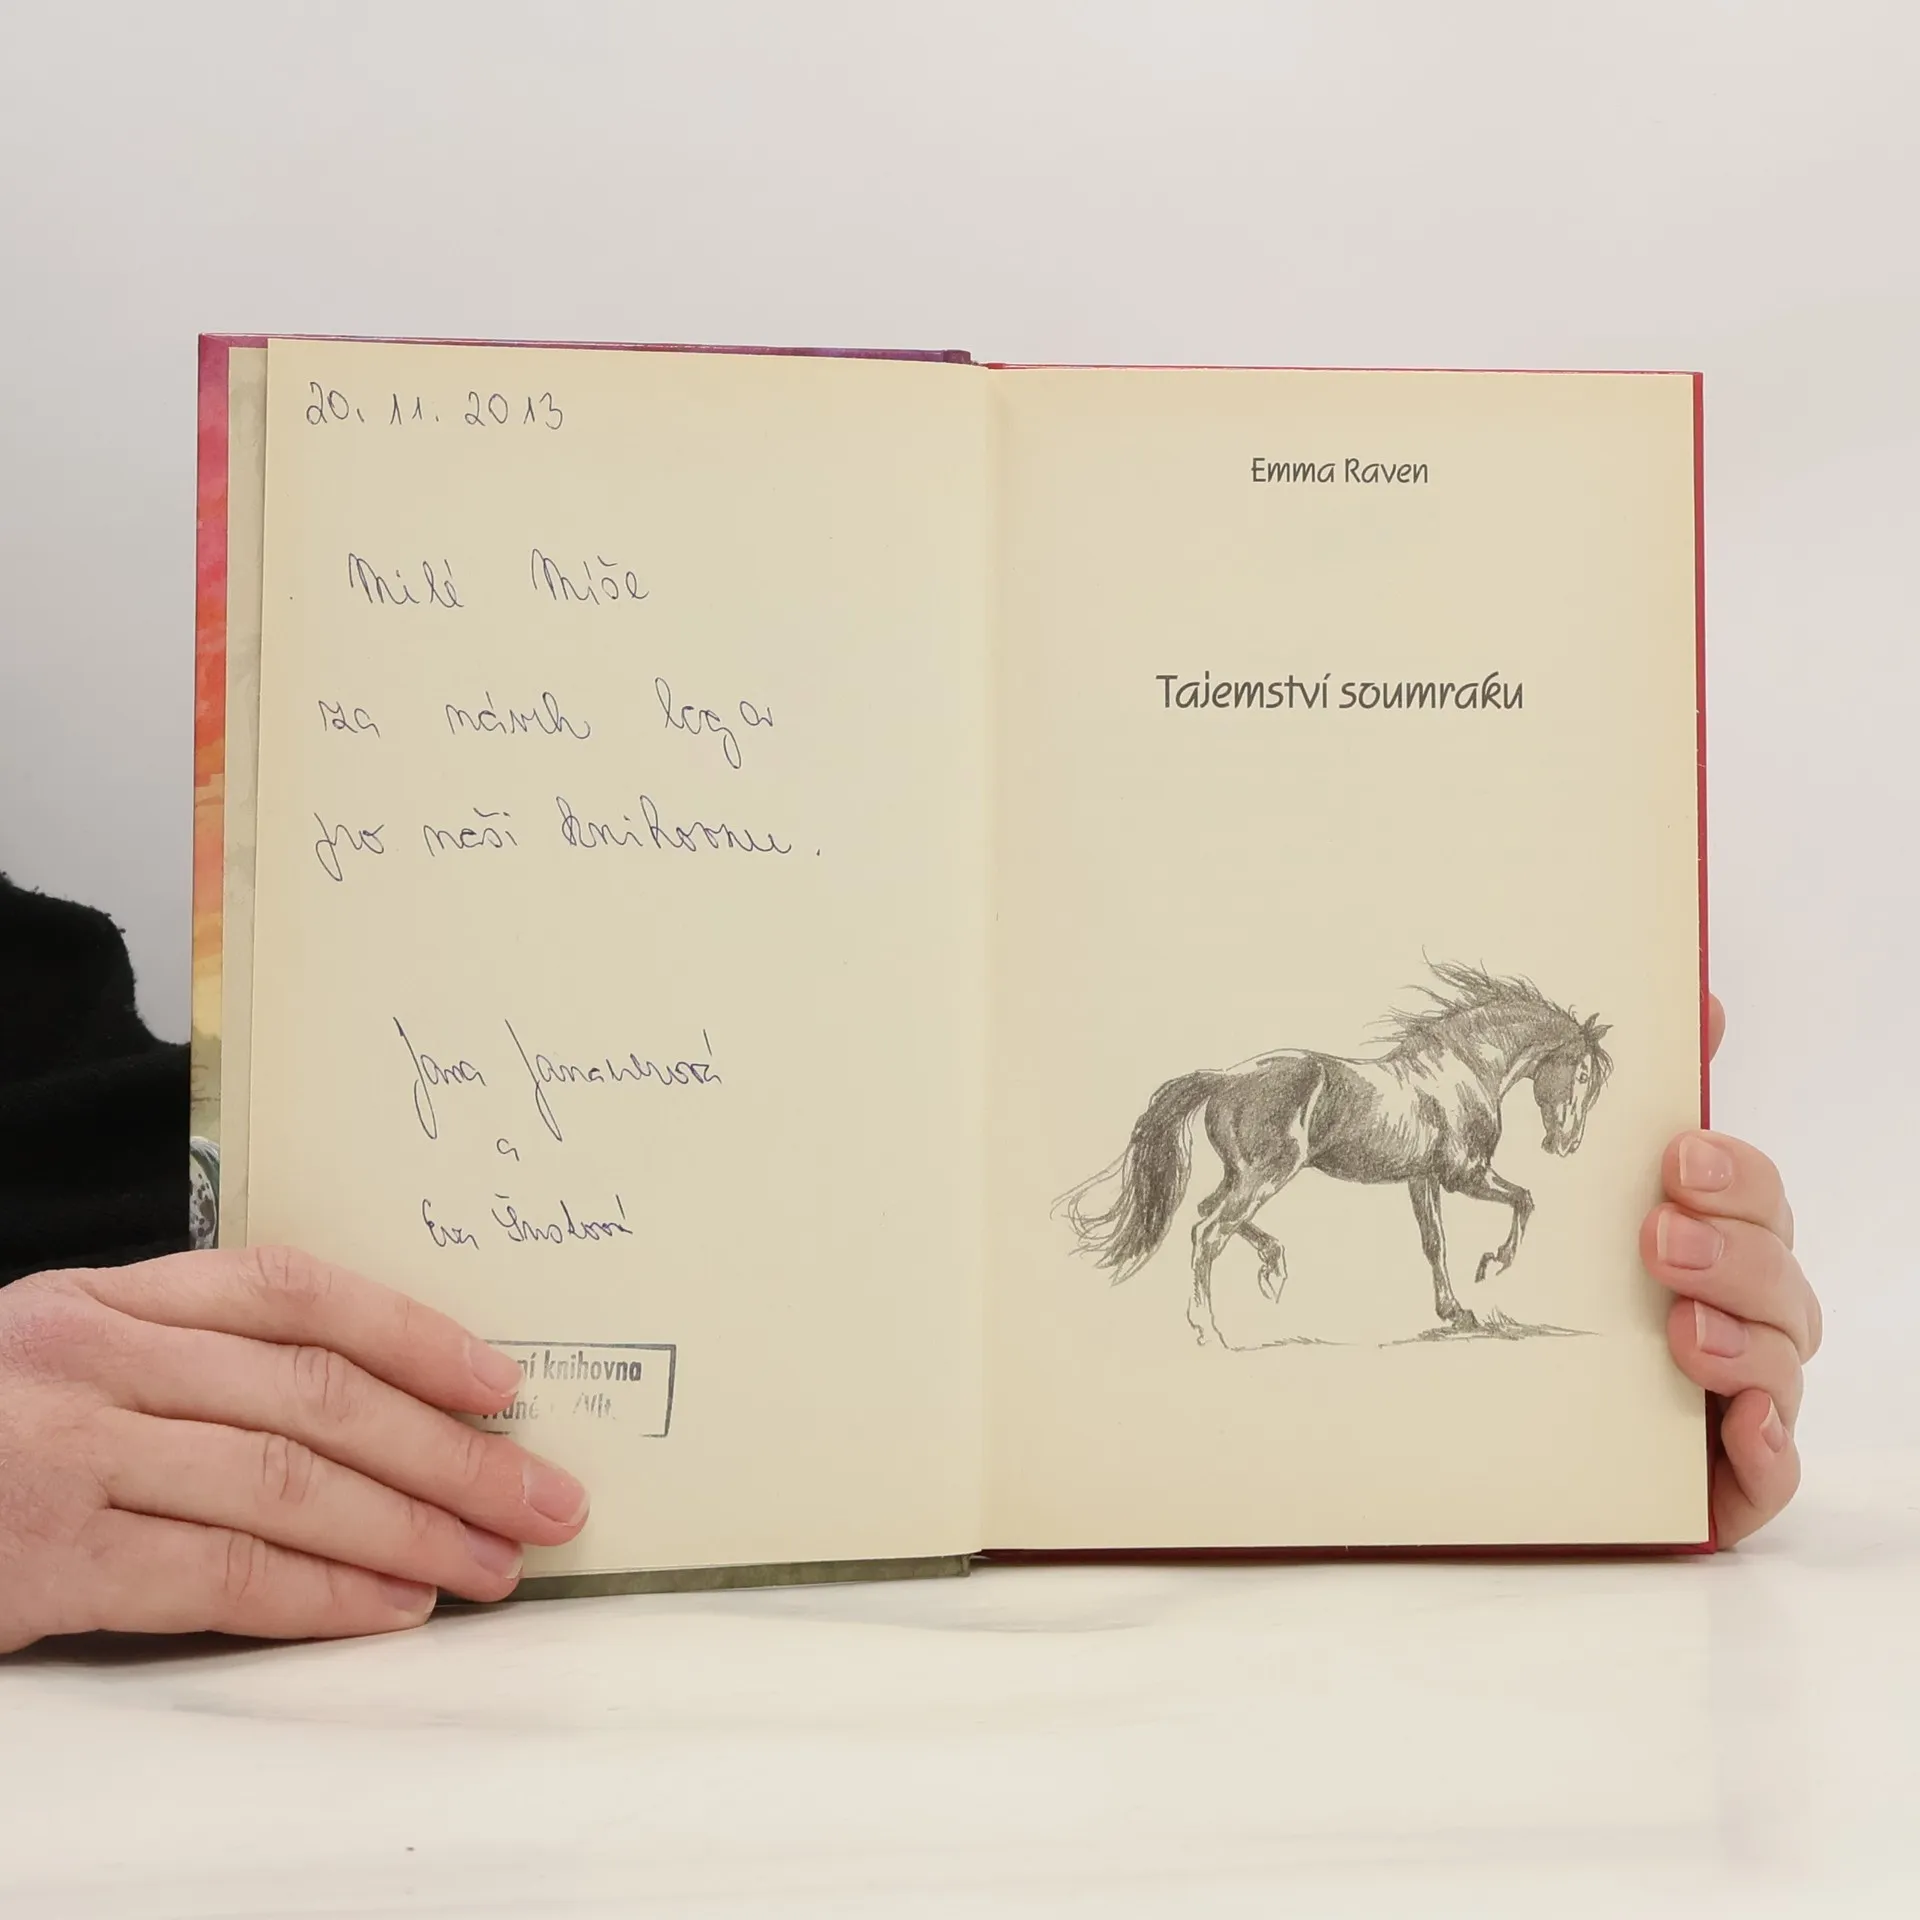 20. 11. 2013
Milé Míše
za návrh loga
pro naši knihovnu.
Jana
a
Eva
ní knihovna
/Vlt.
Emma Raven
Tajemství soumraku